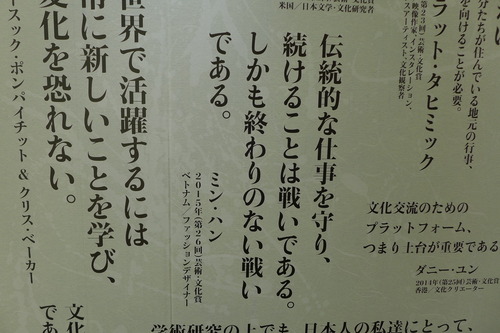 分たちが住んでいる地元の行事、
を向けることが必要。
ラット・タヒミック
第23回）芸術・文化賞
映像作家・インスタレーション、
スアーティスト・文化観察者
米国／日本文学・文化研究者
伝統的な仕事を守り、
続けることは戦いである。
しかも終わりのない戦い
である。
ミン・ハン
2015年（第26回）芸術・文化賞
ベトナム／ファッションデザイナー
世界で活躍するには
常に新しいことを学び、
変化を恐れない。
ースック・ポンパイチット & クリス・ベーカー
文化交流のための
プラットフォーム、
つまり土台が重要である
ダニー・ユン
2014年（第25回）芸術・文化賞
香港／文化クリエーター
文化
であ
学術研究の上でも、日本人の私達にとって、